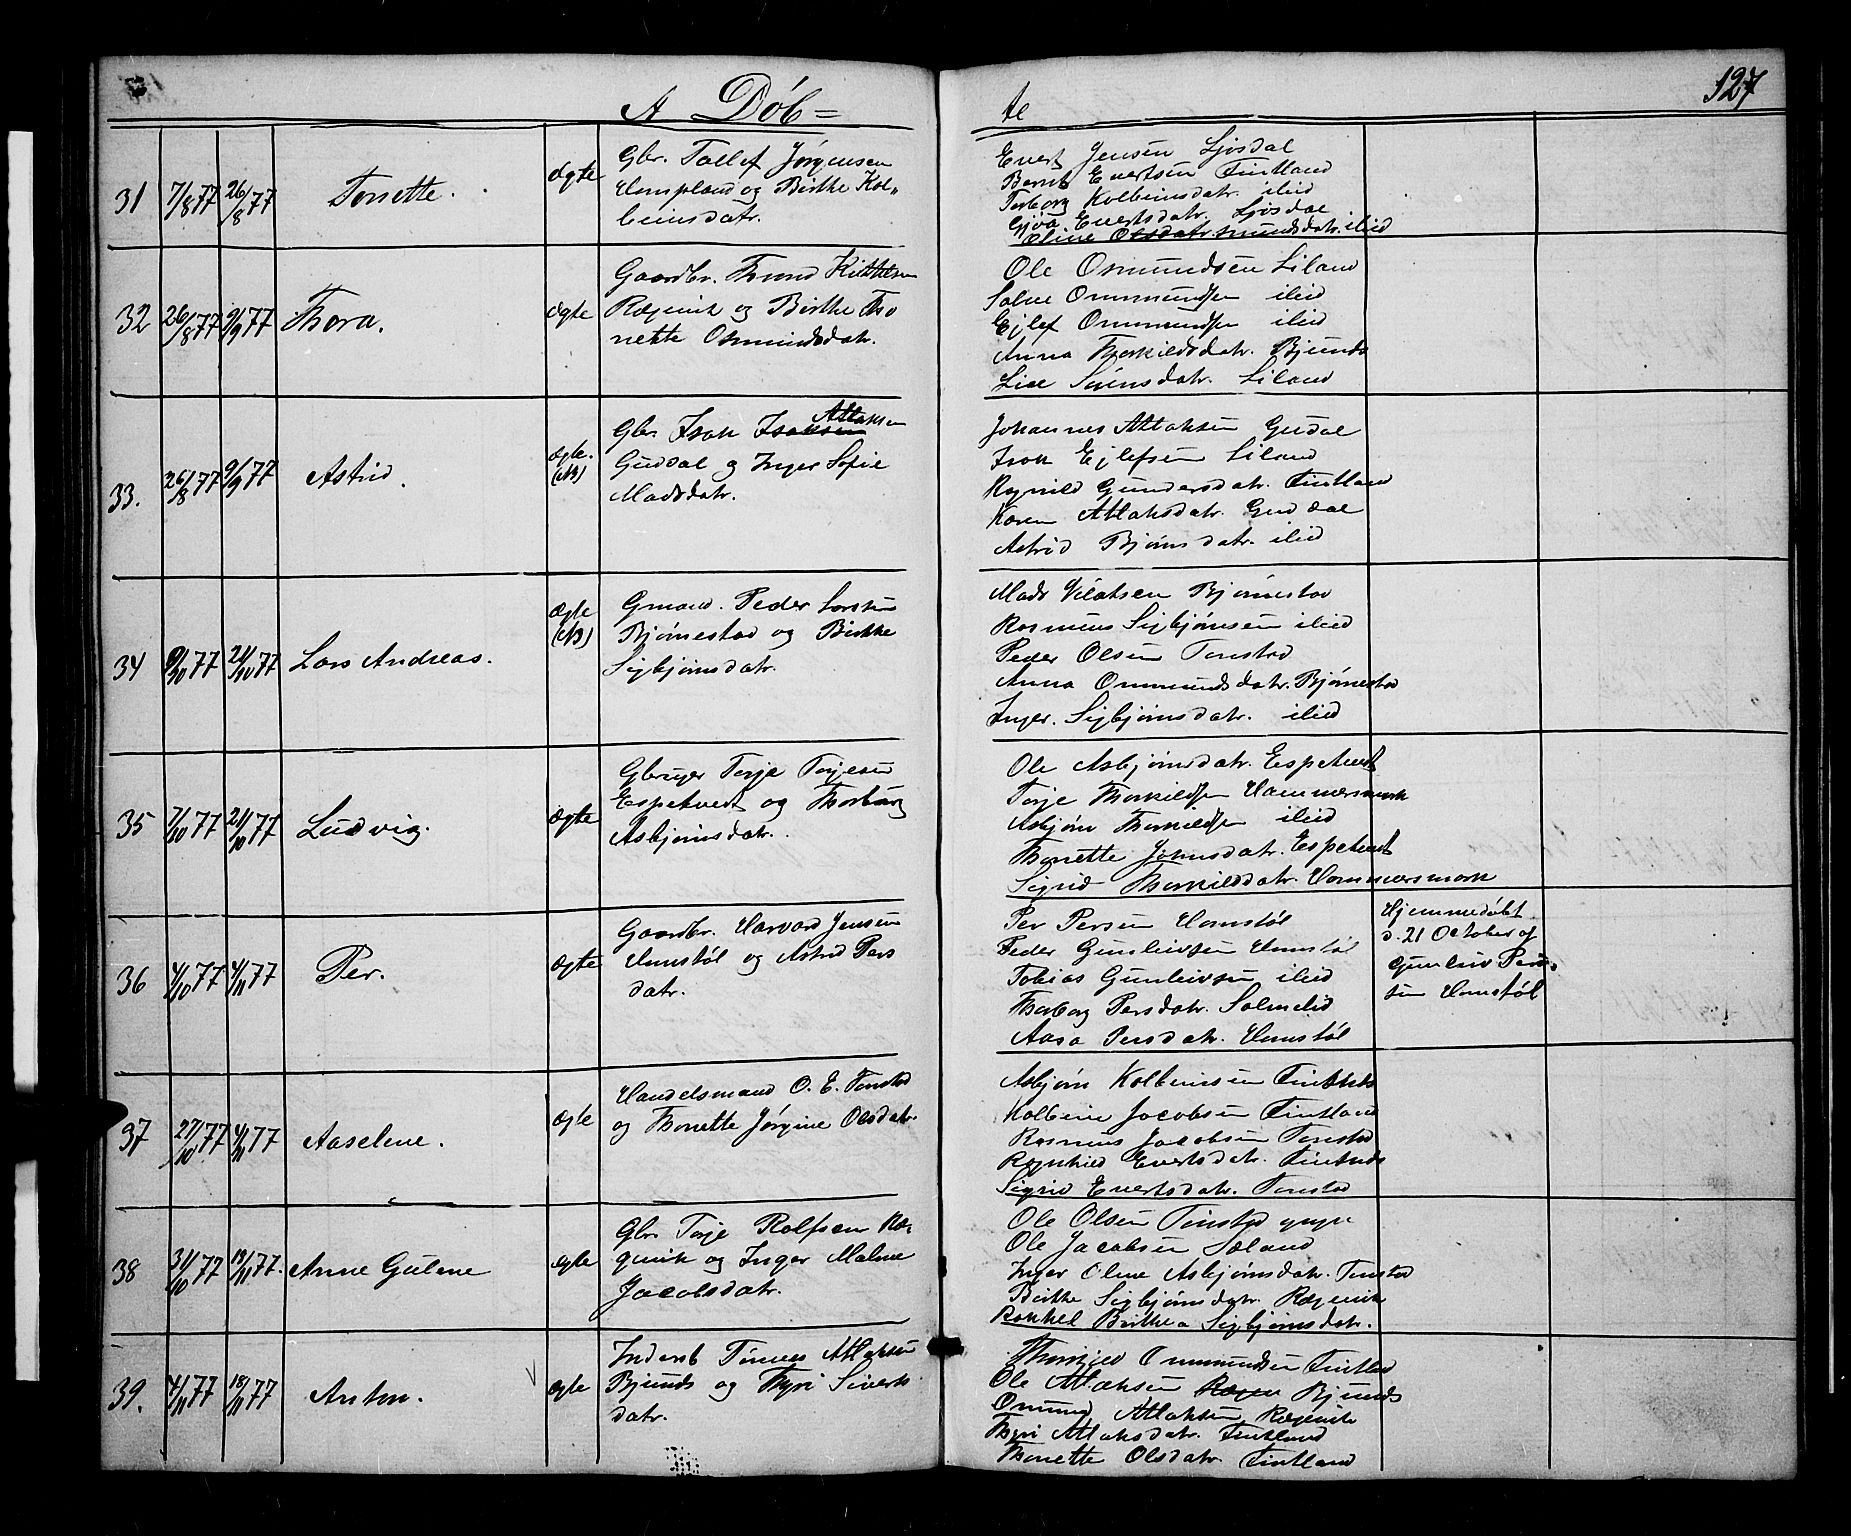 A Døb=
te
127
31 7/8 77 26/8 77 Tonette. ægte
Gbr. Tollef Jørgensen
Hompland og Birthe Kol-
beinsdatr.
Evert Jensen Ljosdal
Bernt Evertsen Fintland
Torborg Kolbeinsdatr. ibid
Gjøa Evertsdatr. Ljosdal
Oline Osmundsdatr. ibid
32 26/8 77 9/9 77 Thora. ægte
Gaardbr. Thund Kittelsen
Rægevik og Birthe Tho
nette Osmundsdatr.
Ole Osmundsen Liland
Salve Ommundsen ibid
Ejlef Ommundsen ibid
Anna Thorkildsdatr. Bjunds
Lise Sørensdatr. Liland
33. 26/8 77 9/9 77 Astrid. ægte. (NB)
Gbr. Isak Isaksen Atlaksen
Guddal og Inger Sofie
Madsdatr.
Johannes Atlaksen Gudal
Isak Ejlefsen Liland
Ragnild Gundersdatr. Fintland
Karen Atlaksdatr. Guddal
Astrid Bjørnsdatr. ibid
34 9/10 77 21/10 77 Lars Andreas. ægte (NB)
Gmand. Peder Larsen
Bjørnestad og Birthe
Sigbjørnsdatr.
Mads Vilatsen Bjørnestad
Rasmus Sigbjørnsen ibid
Peder Olsen Tonstad
Anna Ommundsdatr. Bjørnestad
Inger. Sigbjørnsdatr. ibid
35 7/10 77 21/10 77 Ludvig. ægte
Gbruger Terje Terjesen
Espetvedt og Thorborg
Asbjørnsdatr.
Ole Asbjørnsdatr. Espetvedt
Terje Thorkildsen Hammersmark
Asbjørn Thorkildsen ibid
Thonette Johnsdatr. Espetvedt
Sigrid Thorkilddatr. Hammersmark
36 4/10 77 4/11 77 Per. ægte
Gaardbr. Harvard Jensen
Homstøl og Astrid Pers
datr.
Per Persen Homstøl
Peder Gunleivsen Homstøl
Tobias Gunleivsen ibid
Thorborg Persdatr. Salmelid
Aasa Persdatr. Homstøl
Hjemmedøbt
d. 21 October af
Gunleiv Peder-
sen Homstøl
37 27/10 77 4/11 77 Aaselene. ægte
Handelsmand O. E. Tonstad
og Thonette Jørgine Olsdatr.
Asbjørn Kolbeinsen Fintlands
Kolbein Jacobsen Fintland
Rasmus Jacobsen Tonstad
Ragnhild Evertsdatr. Fintlands
Sigrid Evertsdatr. Tonstad
38 31/10 77 18/11 77. Anne Guline ægte
Gbr. Terje Rolfsen Ræ-
gevik og Inger Malene
Jacobsdatr.
Ole Olsen Tonstad yngre
Ole Jacobsen Sæland
Inger Oline Asbjørnsdatr. Tonstad
Birthe Sigbjørnsdatr. Rægevik
Rakkel Birthea Sigbjørnsdatr.
39. 4/11 77 18/11 77 Anton. ægte
Inderst Tønnes Atlaksen
Bjunds og Thyri Siverts
datr.
Thorkild Ommundsen Fintland
Ole Atlaksen Rægev Bjunds
Omund Atlaksen Rægevik
Thyri Atlaksdatr. Fintland
Thonette Olsdatr. Fintland